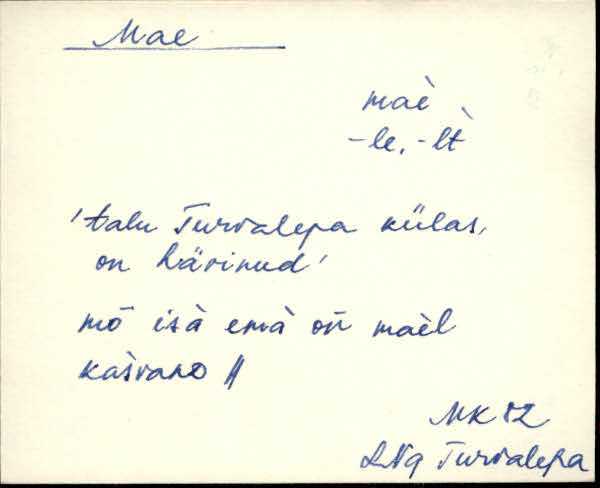 Mae
maè
-le, -lt̀
'talu Turvalepa külas,
on hävinud'
mō isà emà on̄ maèl
kaśvano //
MK 82
LNg Turvalepa